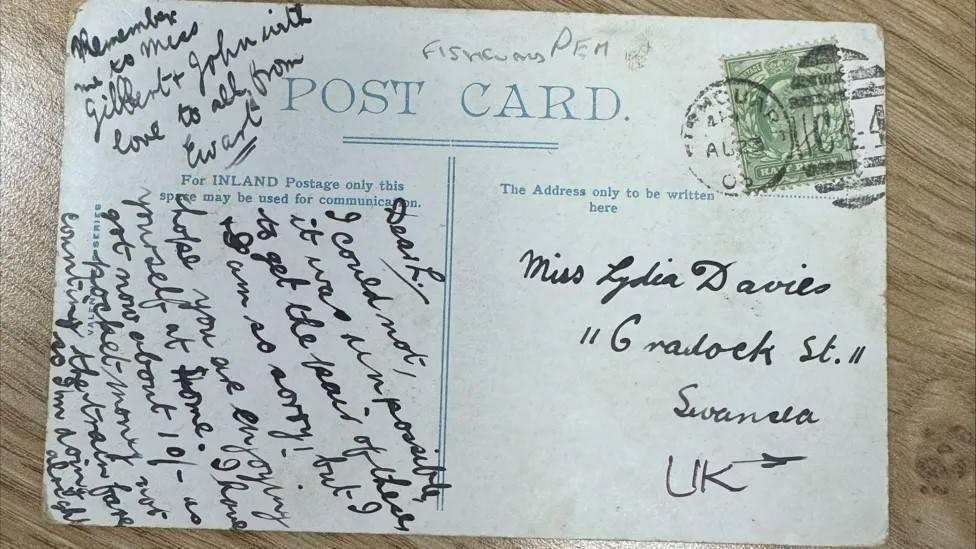 Remember
me to Miss
Gilbert + John with
love to all from
Ewart
FISHGUARD PEM
POST CARD.
For INLAND Postage only this
space may be used for communication.
The Address only to be written
here
Dear L.,
I could not,
it was impossible,
to get the pair of these
+ I am so sorry! but I
hope you are enjoying
yourself at Home. I have
got now about 10/- as
pocket money not
counting the train fare
so I'm doing
alright
Miss Lydia Davies
"11 Cradock St."
Swansea
UK
SERIES
AU 23